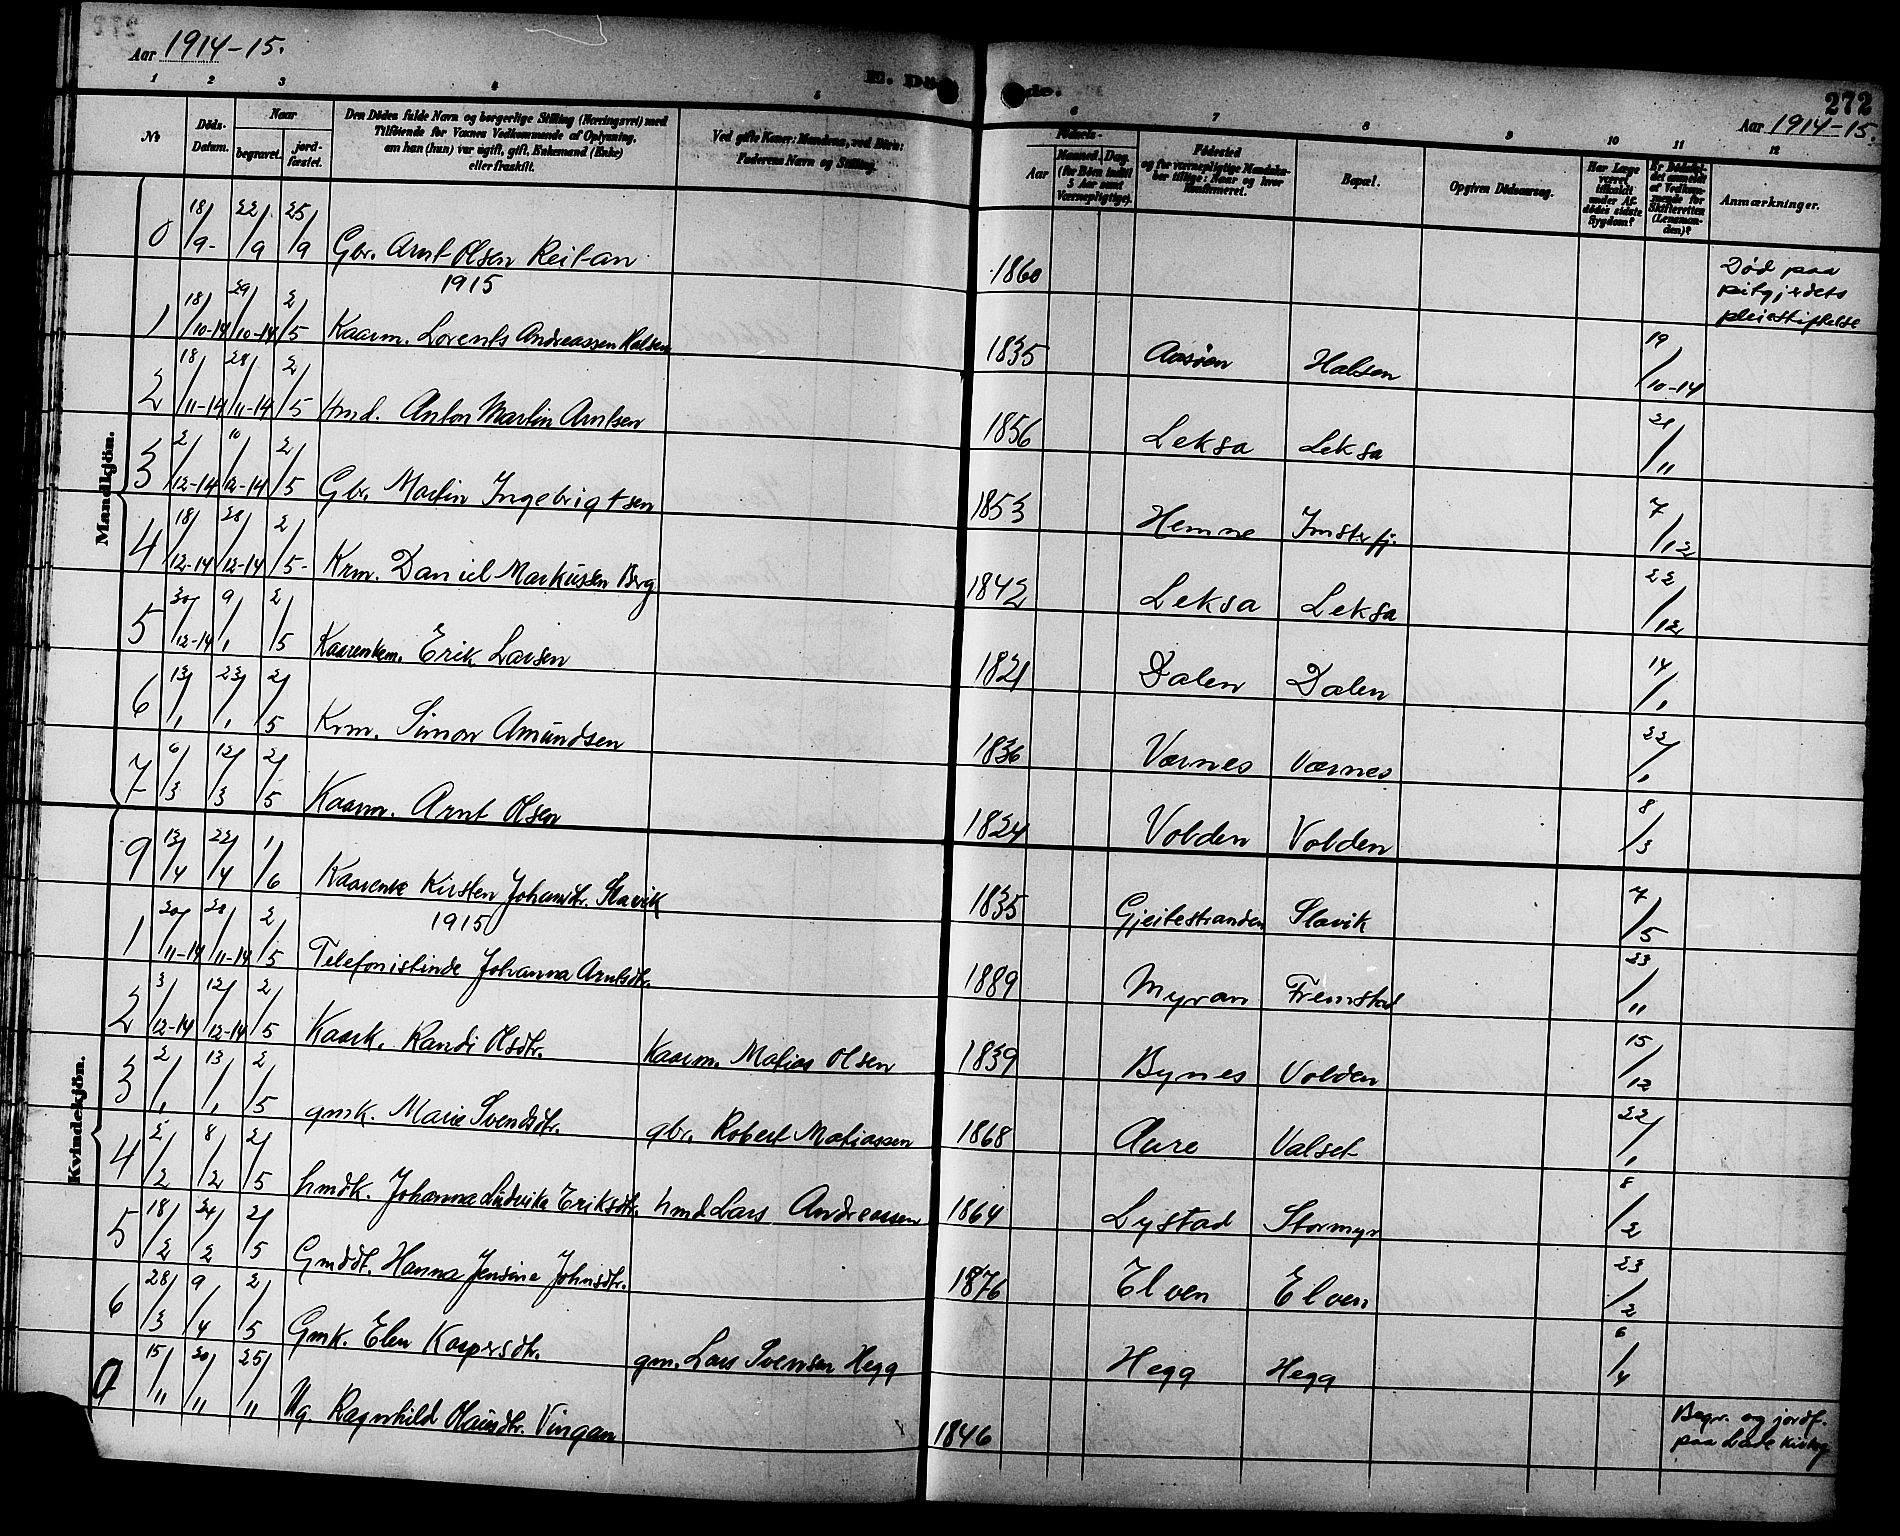 Aar 1914-15.
E. Döde.
272
Aar 1914-15.
1 2 3 4 5 6 7 8 9 10 11 12
No
Döds-Datum.
Naar
begravet.
jord-fæstet.
Den Dödes fulde Navn og borgerlige Stilling (Næringsvei) med
Tilföiende for Voxnes Vedkommende af Oplysning,
om han (hun) var ugift, gift, Enkemand (Enke)
eller fraskilt.
Ved gifte Koner: Mandens, ved Börn:
Faderens Navn og Stilling.
Födsels-
Aar
Maaned. Dag.
(for Börn indtil
5 Aar samt
Værnepligtige).
Födested
og for værnepligtige Mandska-
ber tillige: Naar og hvor
konfirmeret.
Bopæl.
Opgiven Dödsaarsag.
Har Læge
været
tilkaldt
under Af-
dødes sidste
Sygdom?
Er Dödsfal-
det anmeldt
af Vedkom-
mende for
Skifteretten
(Lensman-
den)?
Anmærkninger.
Mandkjön.
0 18/9- 22/9 25/9 Gbr. Arnt Olsen Reitan 1860 Død paa
pleiestiftelse
1915
1 18/10-14 29/10-14 2/5 Kaarm. Lorents Andreassen Halsen 1835 Aasøen Halsen 19/10-14
2 18/11-14 28/11-14 2/5 Hmd. Anton Martin Arntsen 1856 Leksa Leksa 21/11
3 2/12-14 10/12-14 2/5 Gbr. Martin Ingebrigtsen 1853 Hemne Imsterfj. 7/12
4 18/12-14 28/12-14 2/5- Krm. Daniel Markussen Berg 1842 Leksa Leksa 22/12
5 30/12-14 9/1 2/5 Kaarenkem. Erik Larsen 1821 Dalen Dalen 14/1
6 13/1 23/1 2/5 Krm. Simon Amundsen 1836 Værnes Værnes 22/1
7 6/3 12/3 2/5 Kaarm. Arnt Olsen 1824 Volden Volden 8/3
Kvindekjön.
9 13/4 22/4 1/6 Kaarenke Kirsten Johansdtr. Slavik 1835 Gjeitestranden Slavik 7/5
1915
1 20/11-14 28/11-14 2/5 Telefonistinde Johanna Arntsdtr. 1889 Myran Fremstad 23/11
2 3/12-14 12/12-14 2/5 Kaark. Randi Olsdtr. Kaarm. Matias Olsen 1839 Bynes Volden 15/12
3 2/1 13/1 2/5 gmk. Marie Svendsdtr. gbr. Robert Matiassen 1868 Aure Valset 22/1
4 2/2 8/2 2/5 hmdk. Johanna Ludvika Eriksdtr. hmd Lars Andreassen 1864 Lystad Stormyr 8/2
5 18/2 24/2 2/5 Gmddt. Hanna Jensine Johnsdtr. 1876 Elven Elven 23/2
6 28/3 9/4 2/5 Gmk. Elen Kaspersdtr. gm. Lars Svensen Hegg Hegg Hegg 6/4
0 15/11 20/11 25/11 Ug. Ragnhild Olausdtr. Vingan 1846 Begr. og jordf.
paa Lade kirkeg